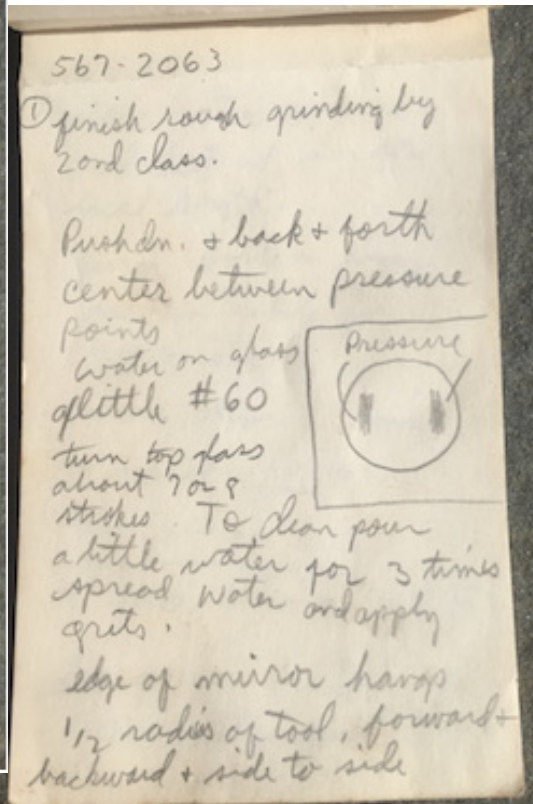 567-2063
① finish rough grinding by
2ond class.
Push dn. & back & forth
center between pressure
points
water on glass
Pressure
a little #60
turn top glass
about 7 or 8
strokes. To clean pour
a little water for 3 times
spread water and apply
grits.
edge of mirror hangs
1/2 radius of tool, forward +
backward + side to side